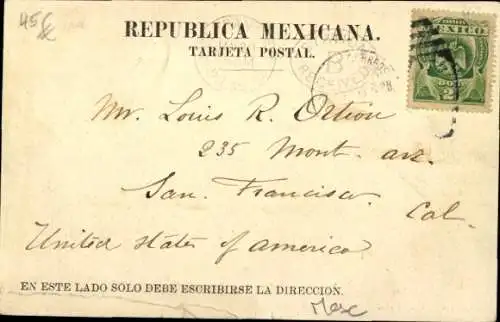 45
REPUBLICA MEXICANA.
TARJETA POSTAL.
MEXICO
2
Mr. Louis R. Ortion
235 Mont. av.
San. Francisco.
Cal.
United States of America
EN ESTE LADO SOLO DEBE ESCRIBIRSE LA DIRECCION.